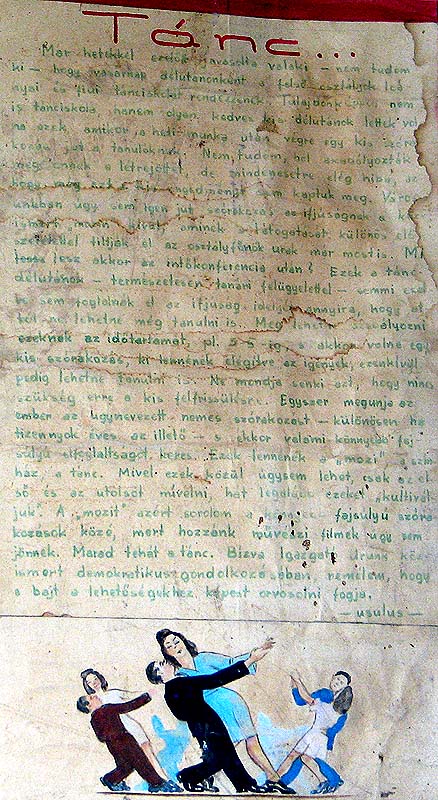 Tánc...
Már hetekkel ezelőtt javasolta valaki - nem tudom
ki - hogy vasárnap délutánonként a felső osztályok leá
nyai és fiúi tánciskolát rendezzenek. Tulajdonképen nem
is tánciskola, hanem olyan kedves kis délutánok lettek vol
na ezek, amikor a heti munka után végre egy kis szóra
kozás jut a tanulóknak. Nem tudom, hol akadályozták
meg ennek a létrejöttét, de mindenesetre elég hiba, az
hogy még ezt a kis engedményt sem kaptuk meg. Váro
unkban úgy sem igen jut szórakozás az ifjúságnak a
ismert mozin kívül, aminek a látogatását különös elő
szeretettel tiltják el az osztályfőnök urak már most is. Mi
lesz akkor az intőkonferencia után? Ezek a tánc-
délutánok - természetesen tanári felügyelettel - semmi
sem foglalnák el az ifjúság idejét annyira, hogy at
tól ne lehetne még tanulni is. Meg lehetne szabályozni
ezeknek az időtartamát, pl. 3-5-ig, s akkor volna egy
kis szórakozás, ki lennének elégítve az igények, ezenkívül
pedig lehetne tanulni is. Ne mondja senki azt, hogy nincs
szükség erre a kis felfrissülésre. Egyszer megunja az
ember az úgynevezett nemes szórakozást - különösen ha
tizennyolc éves az illető - s ekkor valami könnyebb faj
súlyú elfoglaltságot keres. Ezek lennének a "mozi" a szín
ház, a tánc. Mivel ezek közül úgysem lehet, csak az el
ső és az utolsót művelni, hát legalább ezeket "kultivál
juk". A "mozit" azért sorolom a fajsúlyú szóra
kozások közé, mert hozzánk művészi filmek úgy sem
jönnek. Marad tehát a tánc. Bízva Igazgató Úrunk köz-
ismert demokratikus gondolkozásában, remélem, hogy
a bajt a lehetőségekhez képest orvosolni fogja.
- usulus -